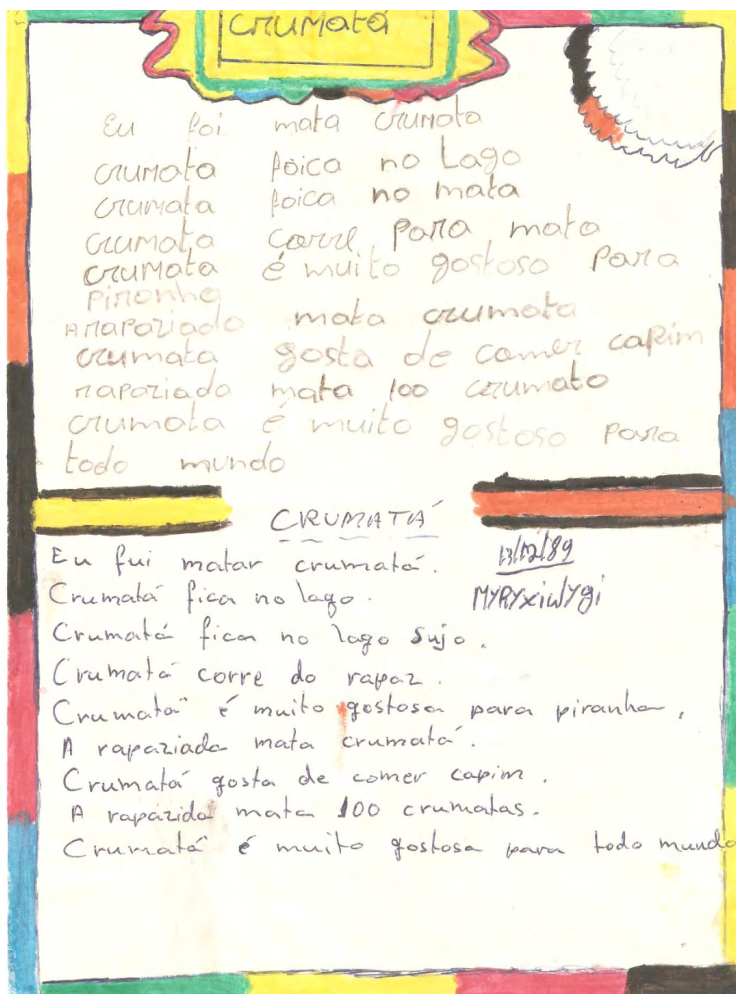 crumatá
Eu foi mata crumata
crumata foica no Lago
crumata foica no mata
crumata corre para mata
crumata é muito gostoso para
piranha
Arapaziado mata crumata
crumata gosta de comer capim
rapaziada mata 100 crumato
crumata é muito gostoso para
todo mundo
CRUMATÁ
Eu fui matar crumatá. 13/02/89
Crumatá fica no lago. MYRYxiwYgi
Crumatá fica no lago sujo.
Crumatá corre do rapaz.
Crumatá é muito gostosa para piranha.
A rapaziada mata crumatá.
Crumatá gosta de comer capim.
A rapazida mata 100 crumatas.
Crumatá é muito gostosa para todo mundo